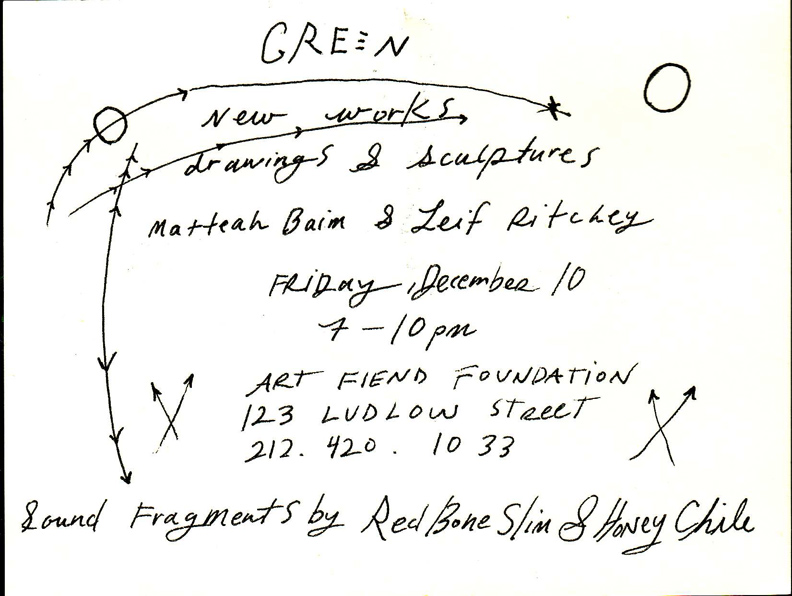 GREEN
New works
drawings & sculptures
Matteah Baim & Leif Ritchey
FRiDay, December 10
7 - 10 pm
ART FIEND FOUNDATION
123 LUDLOW Street
212. 420. 10 33
Sound Fragments by Red Bone Slim & Honey Chile